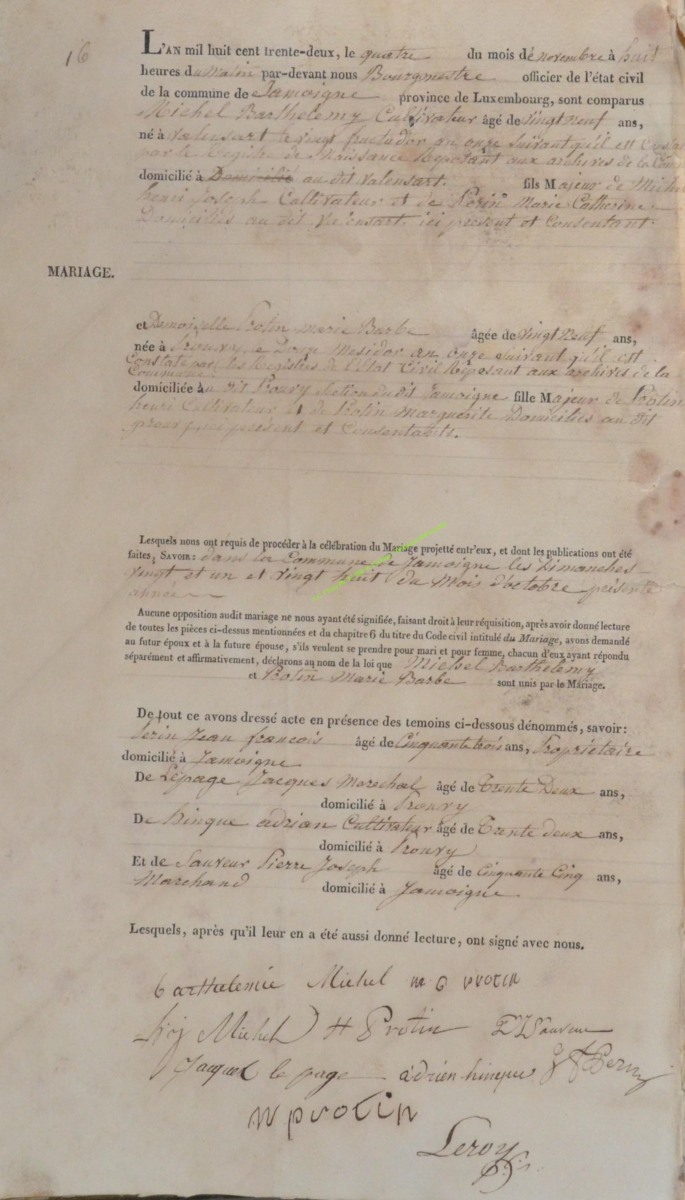 16
L'AN mil huit cent trente-deux, le quatre du mois de novembre à huit
heures du Matin par-devant nous Bourgmestre officier de l'état civil
de la commune de Jamoigne province de Luxembourg, sont comparus
Michel Barthelemy Cultivateur âgé de vingt neuf ans,
né à valensart le vingt fructador an onze suivant qu'il est Constaté
par le Registre de Naissance Reposant aux archives de la Com
domicilié à Domicilié au dit valensart. fils Majeur de Michel
henri Joseph Cultivateur et de Marie Catherine
Domiciliés au dit valensart ici present et Consentant.
MARIAGE.
et Demoiselle Protin Marie Barbe âgée de vingt neuf ans,
née à Prouvy, le Messidor an onze suivant qu'il est
Constaté par les Registres de l'Etat Civil Reposant aux archives de la
Commune
domiciliée au dit Prouvy Section du dit Jamoigne fille Majeur de Protin
henri Cultivateur et de Protin Marguerite Domiciliés au dit
prouvy ici présent et Consentants.
Lesquels nous ont requis de procéder à la célébration du Mariage projetté entr'eux, et dont les publications ont été
faites, SAVOIR: dans la Commune de Jamoigne les Dimanches
vingt et un et vingt huit du Mois d'octobre présente
année
Aucune opposition audit mariage ne nous ayant été signifiée, faisant droit à leur réquisition, après avoir donné lecture
de toutes les pièces ci-dessus mentionnées et du chapitre 6 du titre du Code civil intitulé du Mariage, avons demandé
au futur époux et à la future épouse, s'ils veulent se prendre pour mari et pour femme, chacun d'eux ayant répondu
séparément et affirmativement, déclarons au nom de la loi que Michel Barthelémy
et Protin Marie Barbe sont unis par le Mariage.
De tout ce avons dressé acte en présence des temoins ci-dessous dénommés, savoir:
Jean francois âgé de Cinquante trois ans, Propriétaire
domicilié à Jamoigne
De Lepage Jacques Marechal âgé de Trente Deux ans,
domicilié à Prouvy
De hinque adrian Cultivateur âgé de Trente deux ans,
domicilié à Prouvy
Et de Sauveur Pierre Joseph âgé de Cinquante Cinq ans,
Marchand domicilié à Jamoigne
Lesquels, après qu'il leur en a été aussi donné lecture, ont signé avec nous.
barthelemie Michel m B protin
hj Michel H Protin Sauveur
Jacques le page adrien hinque
M protin
Leroy